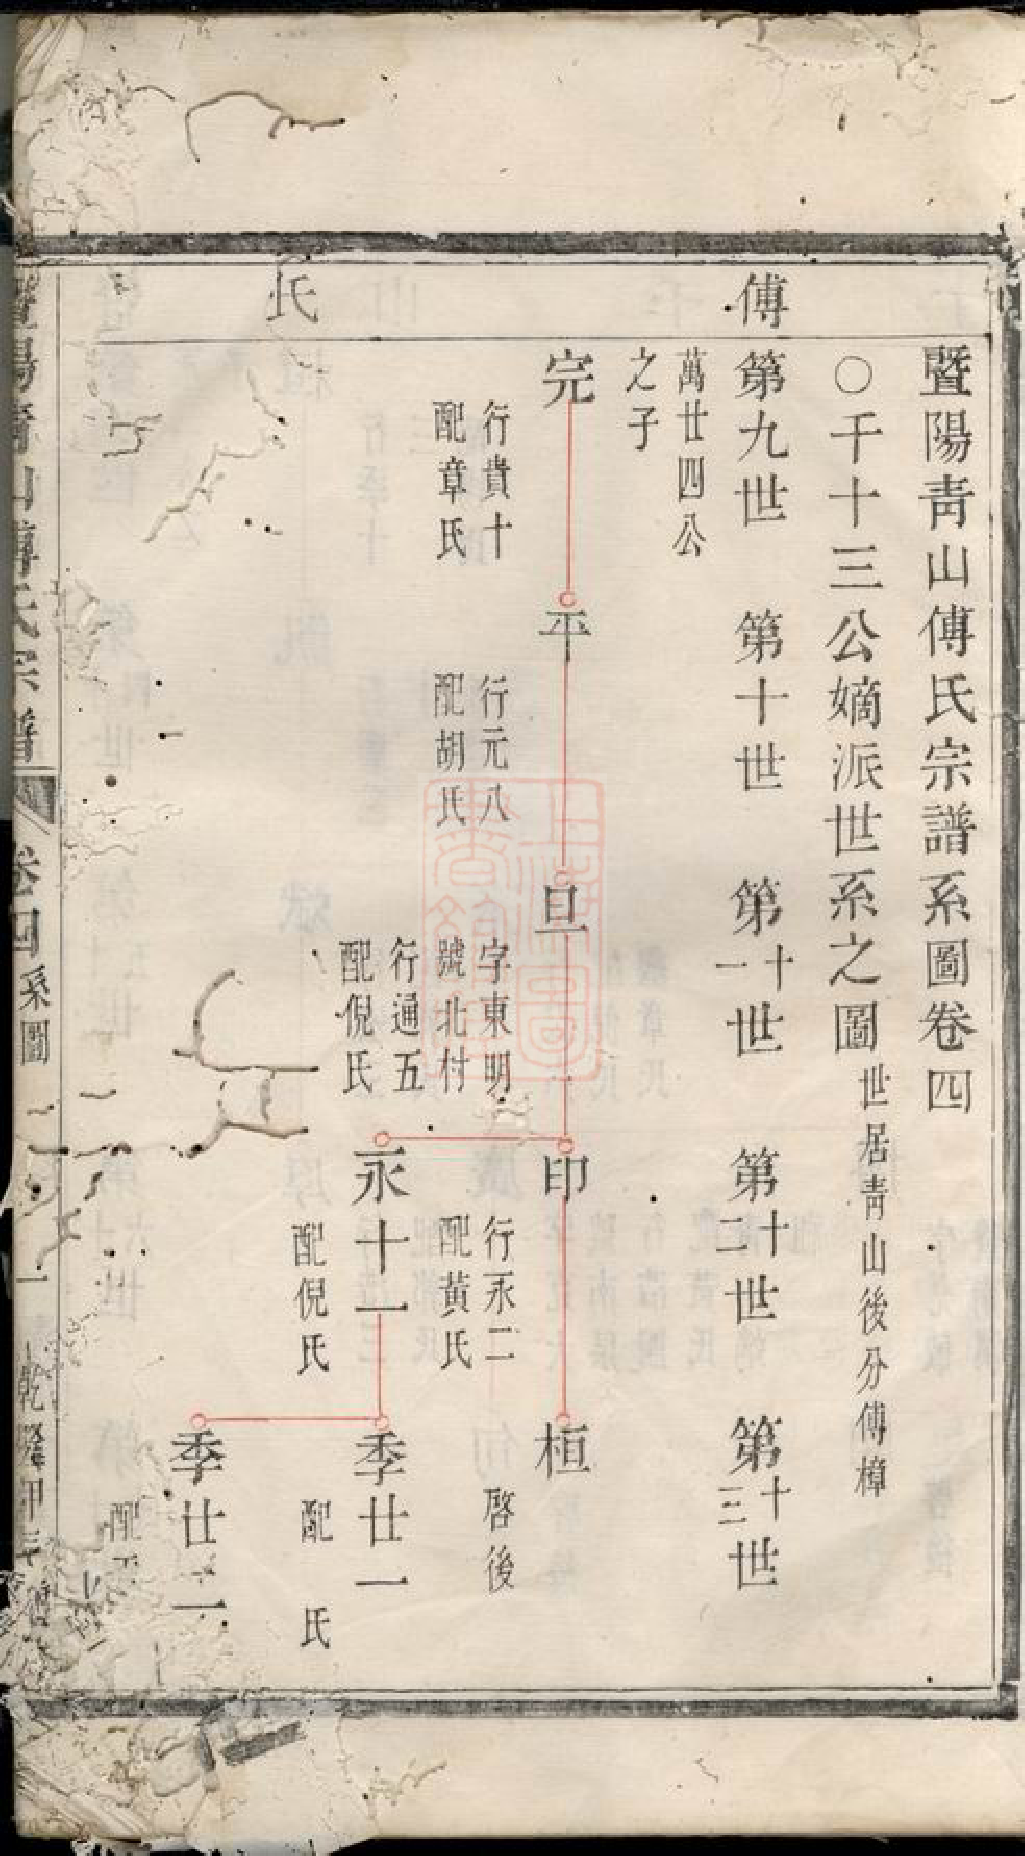 暨陽青山傅氏宗譜系圖卷四
○千十三公嫡派世系之圖 世居青山後分傅樟
傅氏
第九世 第十世 第十一世 第十二世 第十三世
萬廿四公
之子
完
行貴十
配章氏
平
行元八
配胡氏
旦
字東明
號北村
行通五
配倪氏
印
行永二
配黃氏
桓
啓後
永十一
配倪氏
季廿一
配 氏
季廿二
配
暨陽青山傅氏宗譜 卷四 系圖 一 乾隆甲